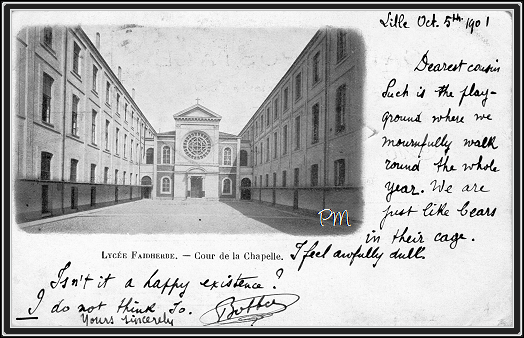 Lille Oct. 5th 1901
Dearest cousin
Such is the play-
ground where we
mournfully walk
round the whole
year. We are
just like bears
in their cage.
I feel awfully dull.
PM
LYCÉE FAIDHERBE. — Cour de la Chapelle.
Isn't it a happy existence?
I do not think so.
Yours sincerely